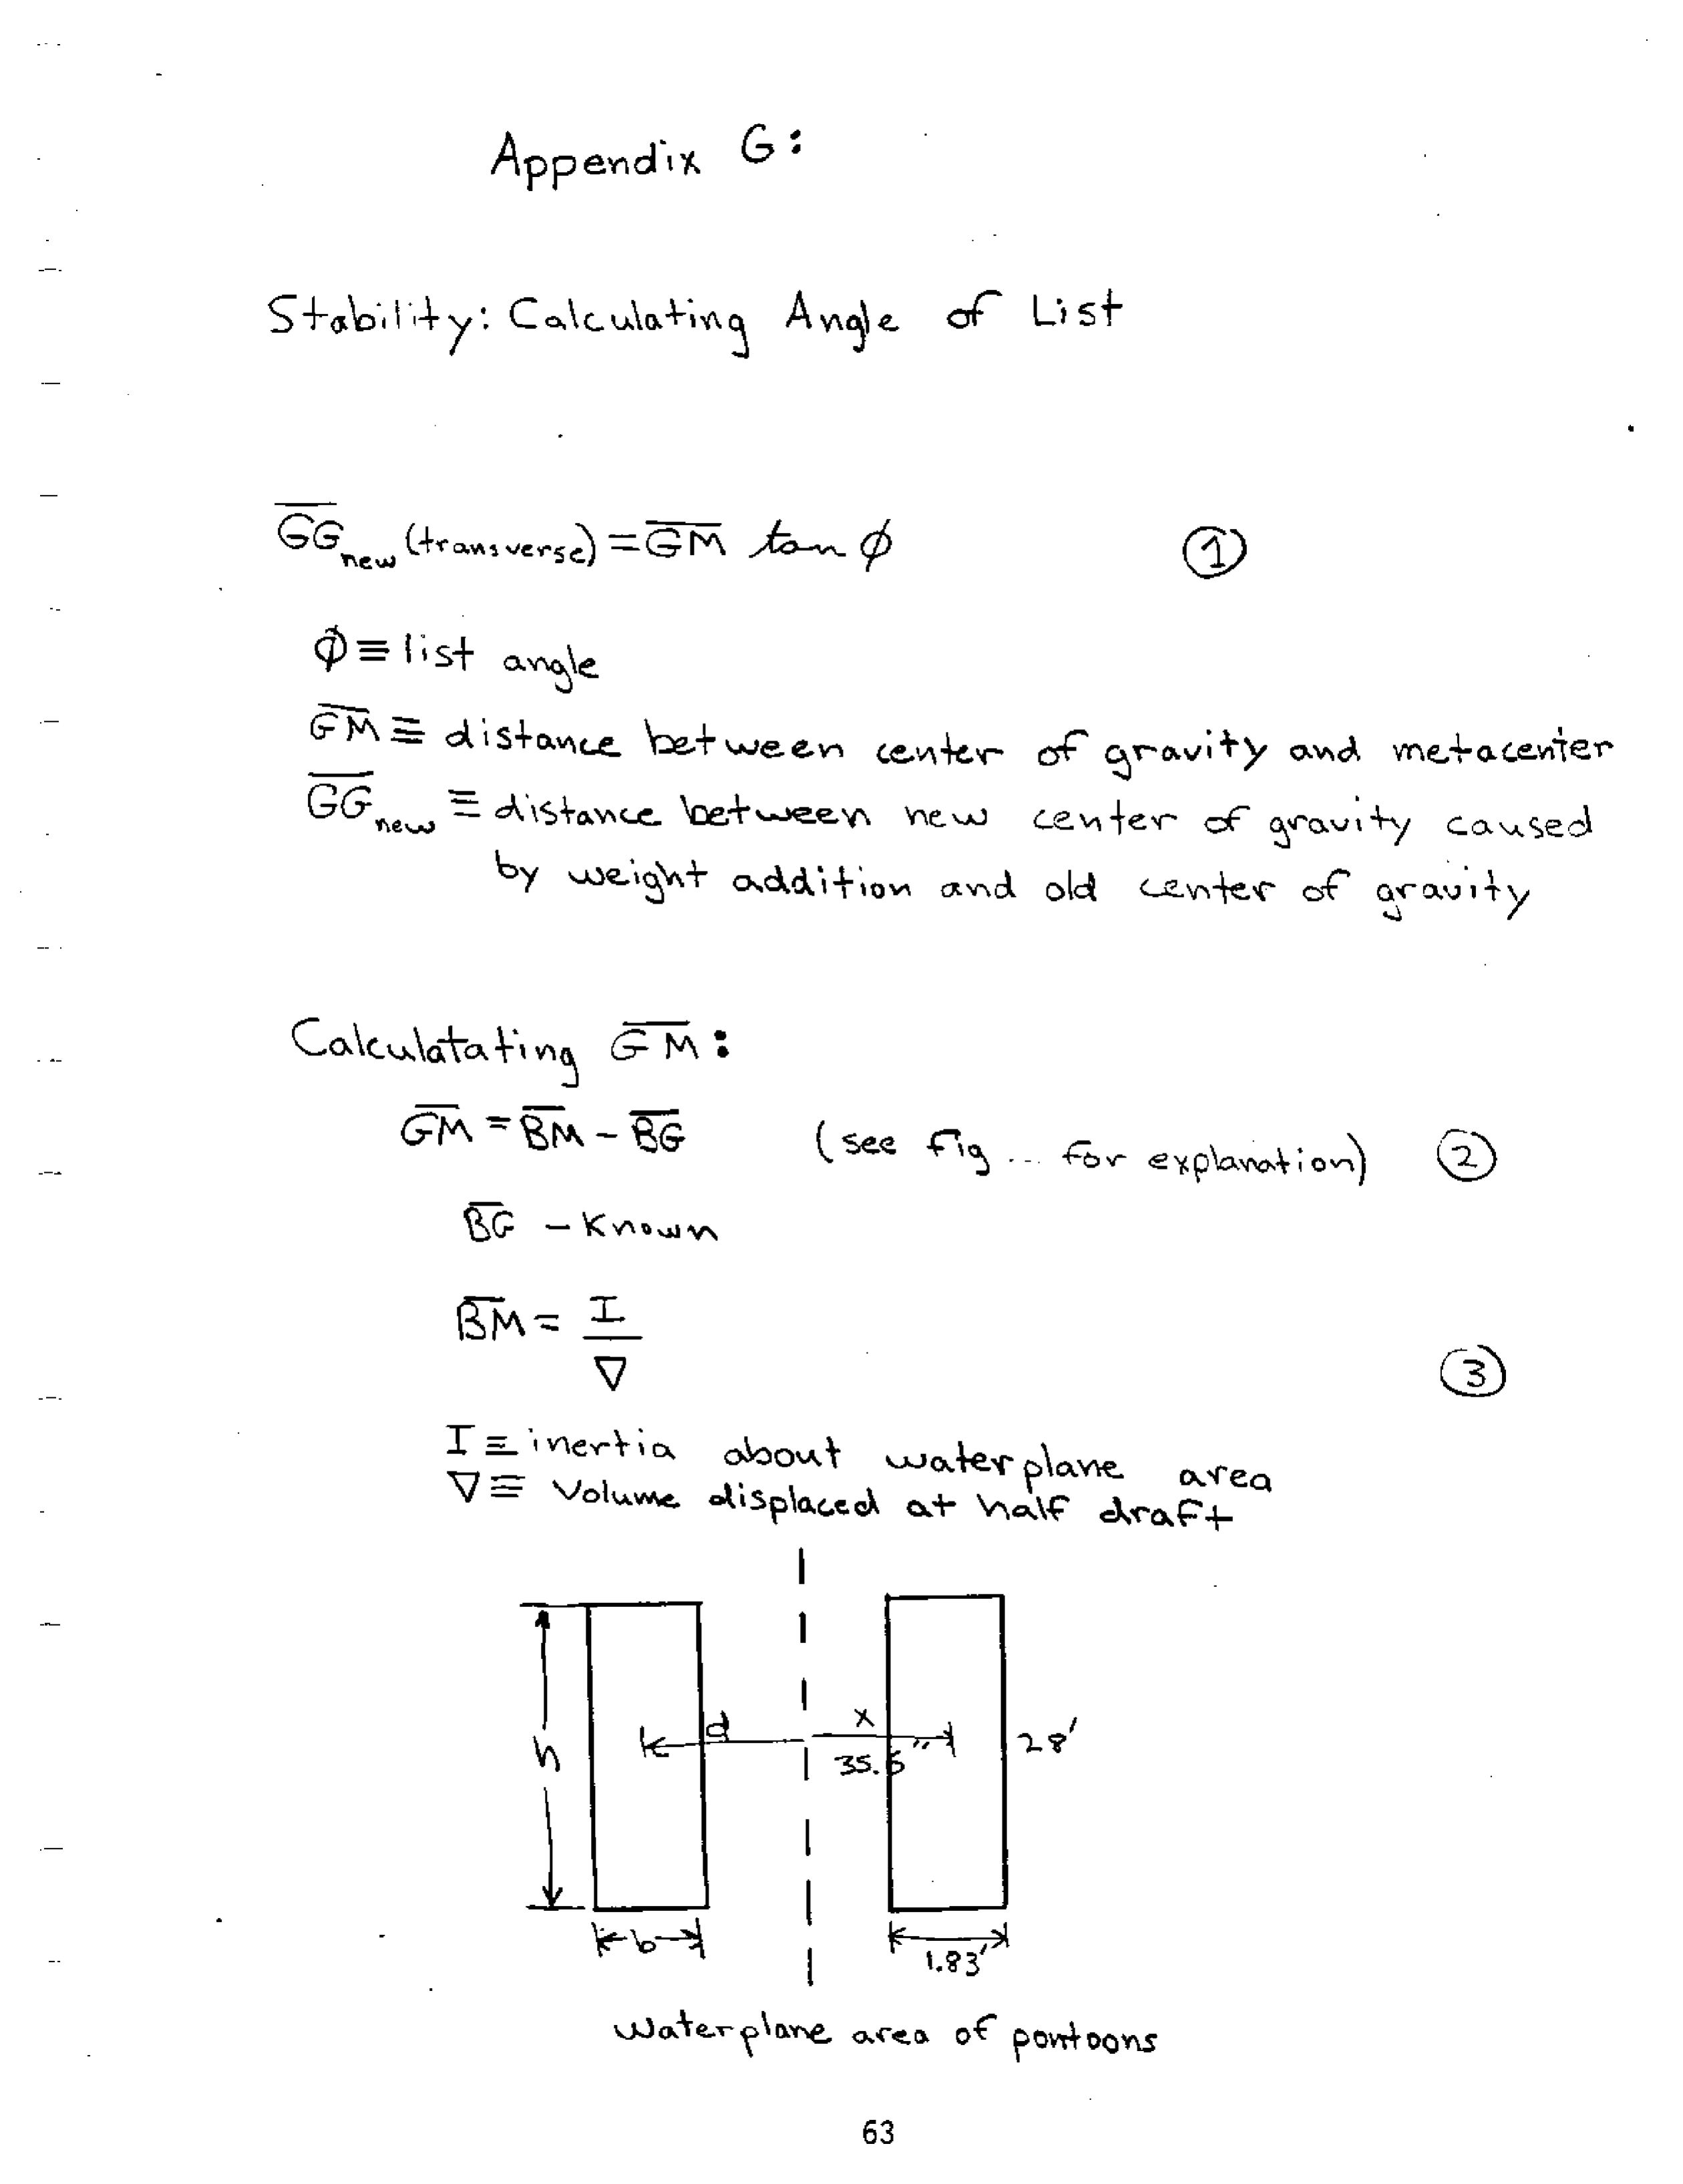 Appendix G:
Stability: Calculating Angle of List
G̅G̅new (transverse) = G̅M̅ tan ϕ ①
ϕ ≡ list angle
G̅M̅ ≡ distance between center of gravity and metacenter
G̅G̅new ≡ distance between new center of gravity caused
by weight addition and old center of gravity
Calculatating G̅M̅:
G̅M̅ = B̅M̅ - B̅G̅ (see fig ... for explanation) ②
B̅G̅ - Known
B̅M̅ = I / ∇
③
I ≡ inertia about waterplane area
∇ ≡ Volume displaced at half draft
h
d
x
35.5"
28'
b
1.83'
waterplane area of pontoons
63